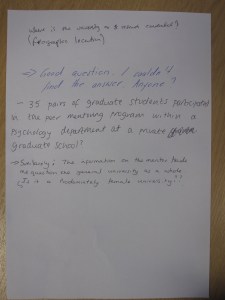 where is the university in a
(Geographic location)
→ Good question. I couldn't
find the answer anywhere?
- 35 pairs of graduate students participated
in the peer mentoring program within a
Psychology department at a private
graduate school?
→ Similarly: The information on the
the question the general university as a whole
↳ Is it a predominately female university?"